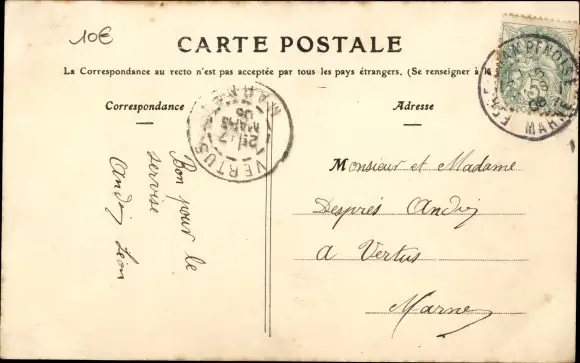 10€
CARTE POSTALE
La Correspondance au recto n'est pas acceptée par tous les pays étrangers. (Se renseigner à la
Correspondance
Adresse
VERTUS
MARNE
MARNE
Bon pour le
servise
André Léon
Monsieur et Madame
Desprès André
a Vertus
Marne